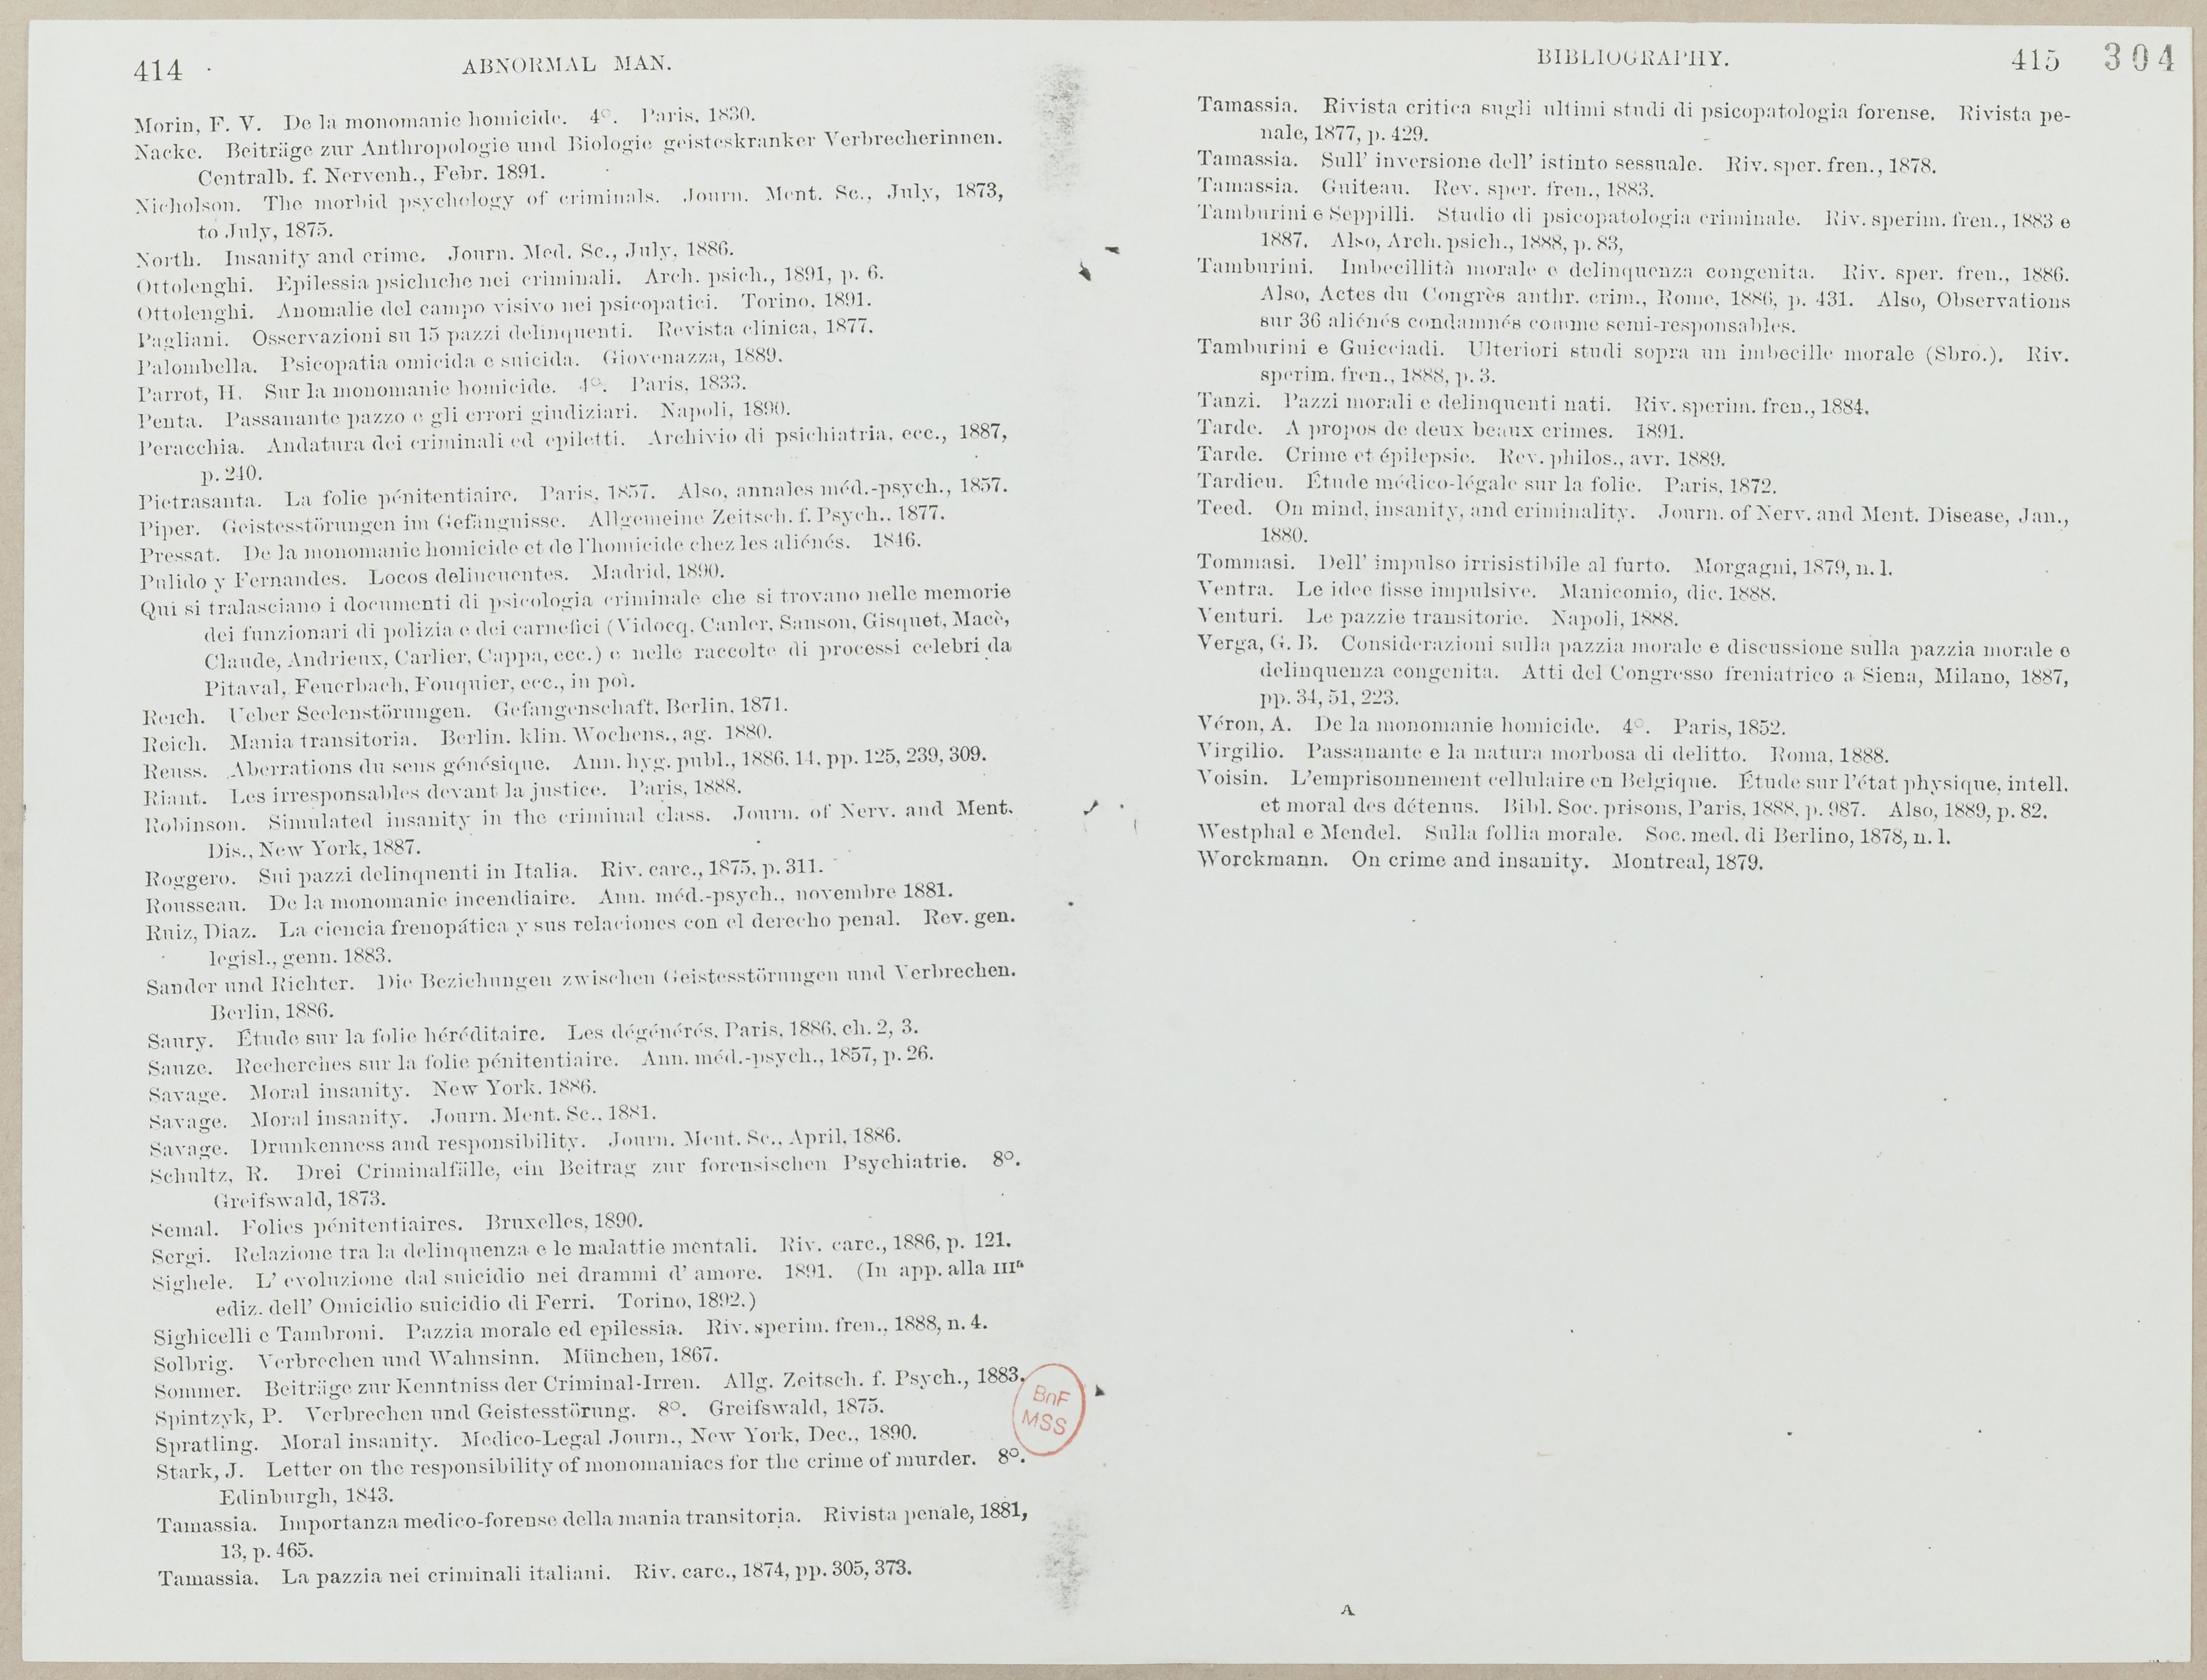 414
ABNORMAL MAN.
Morin, F. V. De la monomanie homicide. 4°. Paris, 1830.
Nacke. Beiträge zur Anthropologie und Biologie geisteskranker Verbrecherinnen.
Centralb. f. Nervenh., Febr. 1891.
Nicholson. The morbid psychology of criminals. Journ. Ment. Sc., July, 1873,
to July, 1875.
North. Insanity and crime. Journ. Med. Sc., July, 1886.
Ottolenghi. Epilessia psichiche nei criminali. Arch. psich., 1891, p. 6.
Ottolenghi. Anomalie del campo visivo nei psicopatici. Torino, 1891.
Pagliani. Osservazioni su 15 pazzi delinquenti. Revista clinica, 1877.
Palombella. Psicopatia omicida e suicida. Giovenazza, 1889.
Parrot, H. Sur la monomanie homicide. 4°. Paris, 1833.
Penta. Passanante pazzo e gli errori giudiziari. Napoli, 1890.
Peracchia. Andatura dei criminali ed epiletti. Archivio di psichiatria, ecc., 1887,
p. 240.
Pietrasanta. La folie pénitentiaire. Paris, 1857. Also, annales méd.-psych., 1857.
Piper. Geistesstörungen im Gefängnisse. Allgemeine Zeitsch. f. Psych., 1877.
Pressat. De la monomanie homicide et de l'homicide chez les aliénés. 1846.
Pulido y Fernandes. Locos delincuentes. Madrid, 1890.
Qui si tralasciano i documenti di psicologia criminale che si trovano nelle memorie
dei funzionari di polizia e dei carnefici (Vidocq, Canler, Sanson, Gisquet, Macè,
Claude, Andrieux, Carlier, Cappa, ecc.) e nelle raccolte di processi celebri da
Pitaval, Feuerbach, Fouquier, ecc., in poi.
Reich. Ueber Seelenstörungen. Gefangenschaft, Berlin, 1871.
Reich. Mania transitoria. Berlin. klin. Wochens., ag. 1880.
Reuss. Aberrations du sens génésique. Ann. hyg. publ., 1886, 14, pp. 125, 239, 309.
Riant. Les irresponsables devant la justice. Paris, 1888.
Robinson. Simulated insanity in the criminal class. Journ. of Nerv. and Ment.
Dis., New York, 1887.
Roggero. Sui pazzi delinquenti in Italia. Riv. carc., 1875, p. 311.
Rousseau. De la monomanie incendiaire. Ann. méd.-psych., novembre 1881.
Ruiz, Diaz. La ciencia frenopática y sus relaciones con el derecho penal. Rev. gen.
legisl., genn. 1883.
Sander und Richter. Die Beziehungen zwischen Geistesstörungen und Verbrechen.
Berlin, 1886.
Saury. Étude sur la folie héréditaire. Les dégénérés, Paris, 1886, ch. 2, 3.
Sauze. Recherches sur la folie pénitentiaire. Ann. méd.-psych., 1857, p. 26.
Savage. Moral insanity. New York, 1886.
Savage. Moral insanity. Journ. Ment. Sc., 1881.
Savage. Drunkenness and responsibility. Journ. Ment. Sc., April, 1886.
Schultz, R. Drei Criminalfälle, ein Beitrag zur forensischen Psychiatrie. 8°.
Greifswald, 1873.
Semal. Folies pénitentiaires. Bruxelles, 1890.
Sergi. Relazione tra la delinquenza e le malattie mentali. Riv. carc., 1886, p. 121.
Sighele. L' evoluzione dal suicidio nei drammi d' amore. 1891. (In app. alla IIIª
ediz. dell' Omicidio suicidio di Ferri. Torino, 1892.)
Sighicelli e Tambroni. Pazzia morale ed epilessia. Riv. sperim. fren., 1888, n. 4.
Solbrig. Verbrechen und Wahnsinn. München, 1867.
Sommer. Beiträge zur Kenntniss der Criminal-Irren. Allg. Zeitsch. f. Psych., 1883.
Spintzyk, P. Verbrechen und Geistesstörung. 8°. Greifswald, 1875.
Spratling. Moral insanity. Medico-Legal Journ., New York, Dec., 1890.
Stark, J. Letter on the responsibility of monomaniacs for the crime of murder. 8°.
Edinburgh, 1843.
Tamassia. Importanza medico-forense della mania transitoria. Rivista penale, 1881,
13, p. 465.
Tamassia. La pazzia nei criminali italiani. Riv. carc., 1874, pp. 305, 373.
BnF
MSS
BIBLIOGRAPHY.
415
304
Tamassia. Rivista critica sugli ultimi studi di psicopatologia forense. Rivista pe-
nale, 1877, p. 429.
Tamassia. Sull' inversione dell' istinto sessuale. Riv. sper. fren., 1878.
Tamassia. Guiteau. Rev. sper. fren., 1883.
Tamburini e Seppilli. Studio di psicopatologia criminale. Riv. sperim. fren., 1883 e
1887. Also, Arch. psich., 1888, p. 83,
Tamburini. Imbecillità morale e delinquenza congenita. Riv. sper. fren., 1886.
Also, Actes du Congrès anthr. crim., Rome, 1886, p. 431. Also, Observations
sur 36 aliénés condamnés comme semi-responsables.
Tamburini e Guicciadi. Ulteriori studi sopra un imbecille morale (Sbro.). Riv.
sperim. fren., 1888, p. 3.
Tanzi. Pazzi morali e delinquenti nati. Riv. sperim. fren., 1884.
Tarde. A propos de deux beaux crimes. 1891.
Tarde. Crime et épilepsie. Rev. philos., avr. 1889.
Tardieu. Étude médico-légale sur la folie. Paris, 1872.
Teed. On mind, insanity, and criminality. Journ. of Nerv. and Ment. Disease, Jan.,
1880.
Tommasi. Dell' impulso irrisistibile al furto. Morgagni, 1879, n. 1.
Ventra. Le idee fisse impulsive. Manicomio, dic. 1888.
Venturi. Le pazzie transitorie. Napoli, 1888.
Verga, G. B. Considerazioni sulla pazzia morale e discussione sulla pazzia morale e
delinquenza congenita. Atti del Congresso freniatrico a Siena, Milano, 1887,
pp. 34, 51, 223.
Véron, A. De la monomanie homicide. 4°. Paris, 1852.
Virgilio. Passanante e la natura morbosa di delitto. Roma, 1888.
Voisin. L'emprisonnement cellulaire en Belgique. Étude sur l'état physique, intell.
et moral des détenus. Bibl. Soc. prisons, Paris, 1888, p. 987. Also, 1889, p. 82.
Westphal e Mendel. Sulla follia morale. Soc. med. di Berlino, 1878, n. 1.
Worckmann. On crime and insanity. Montreal, 1879.
A